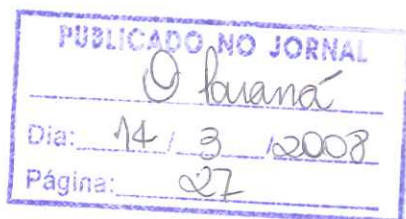 PUBLICADO NO JORNAL
O Paraná
Dia: 14 / 3 / 2008
Página: 27